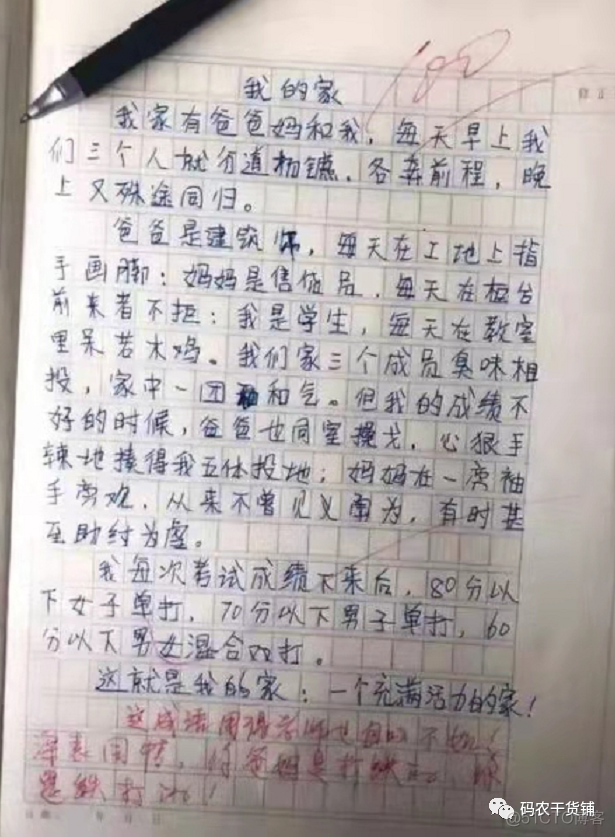 100
我的家
我家有爸爸妈和我，每天早上我
们三个人就分道扬镳，各奔前程，晚
上又殊途同归。
爸爸是建筑师，每天在工地上指
手画脚；妈妈是售货员，每天在柜台
前来者不拒；我是学生，每天在教室
里呆若木鸡。我们家三个成员臭味相
投，家中一团和气。但我的成绩不
好的时候，爸爸也同室操戈，心狠手
辣地揍得我五体投地；妈妈在一旁袖
手旁观，从来不曾见义勇为，有时甚
至助纣为虐。
我每次考试成绩下来后，80分以
下女子单打，70分以下男子单打，60
分以下男女混合双打。
这就是我的家：一个充满活力的家！
这成语用得老师也自叹不如！
深表同情，你爸妈是打铁的，你
是铁打的！
码农干货铺
@51CTO博客